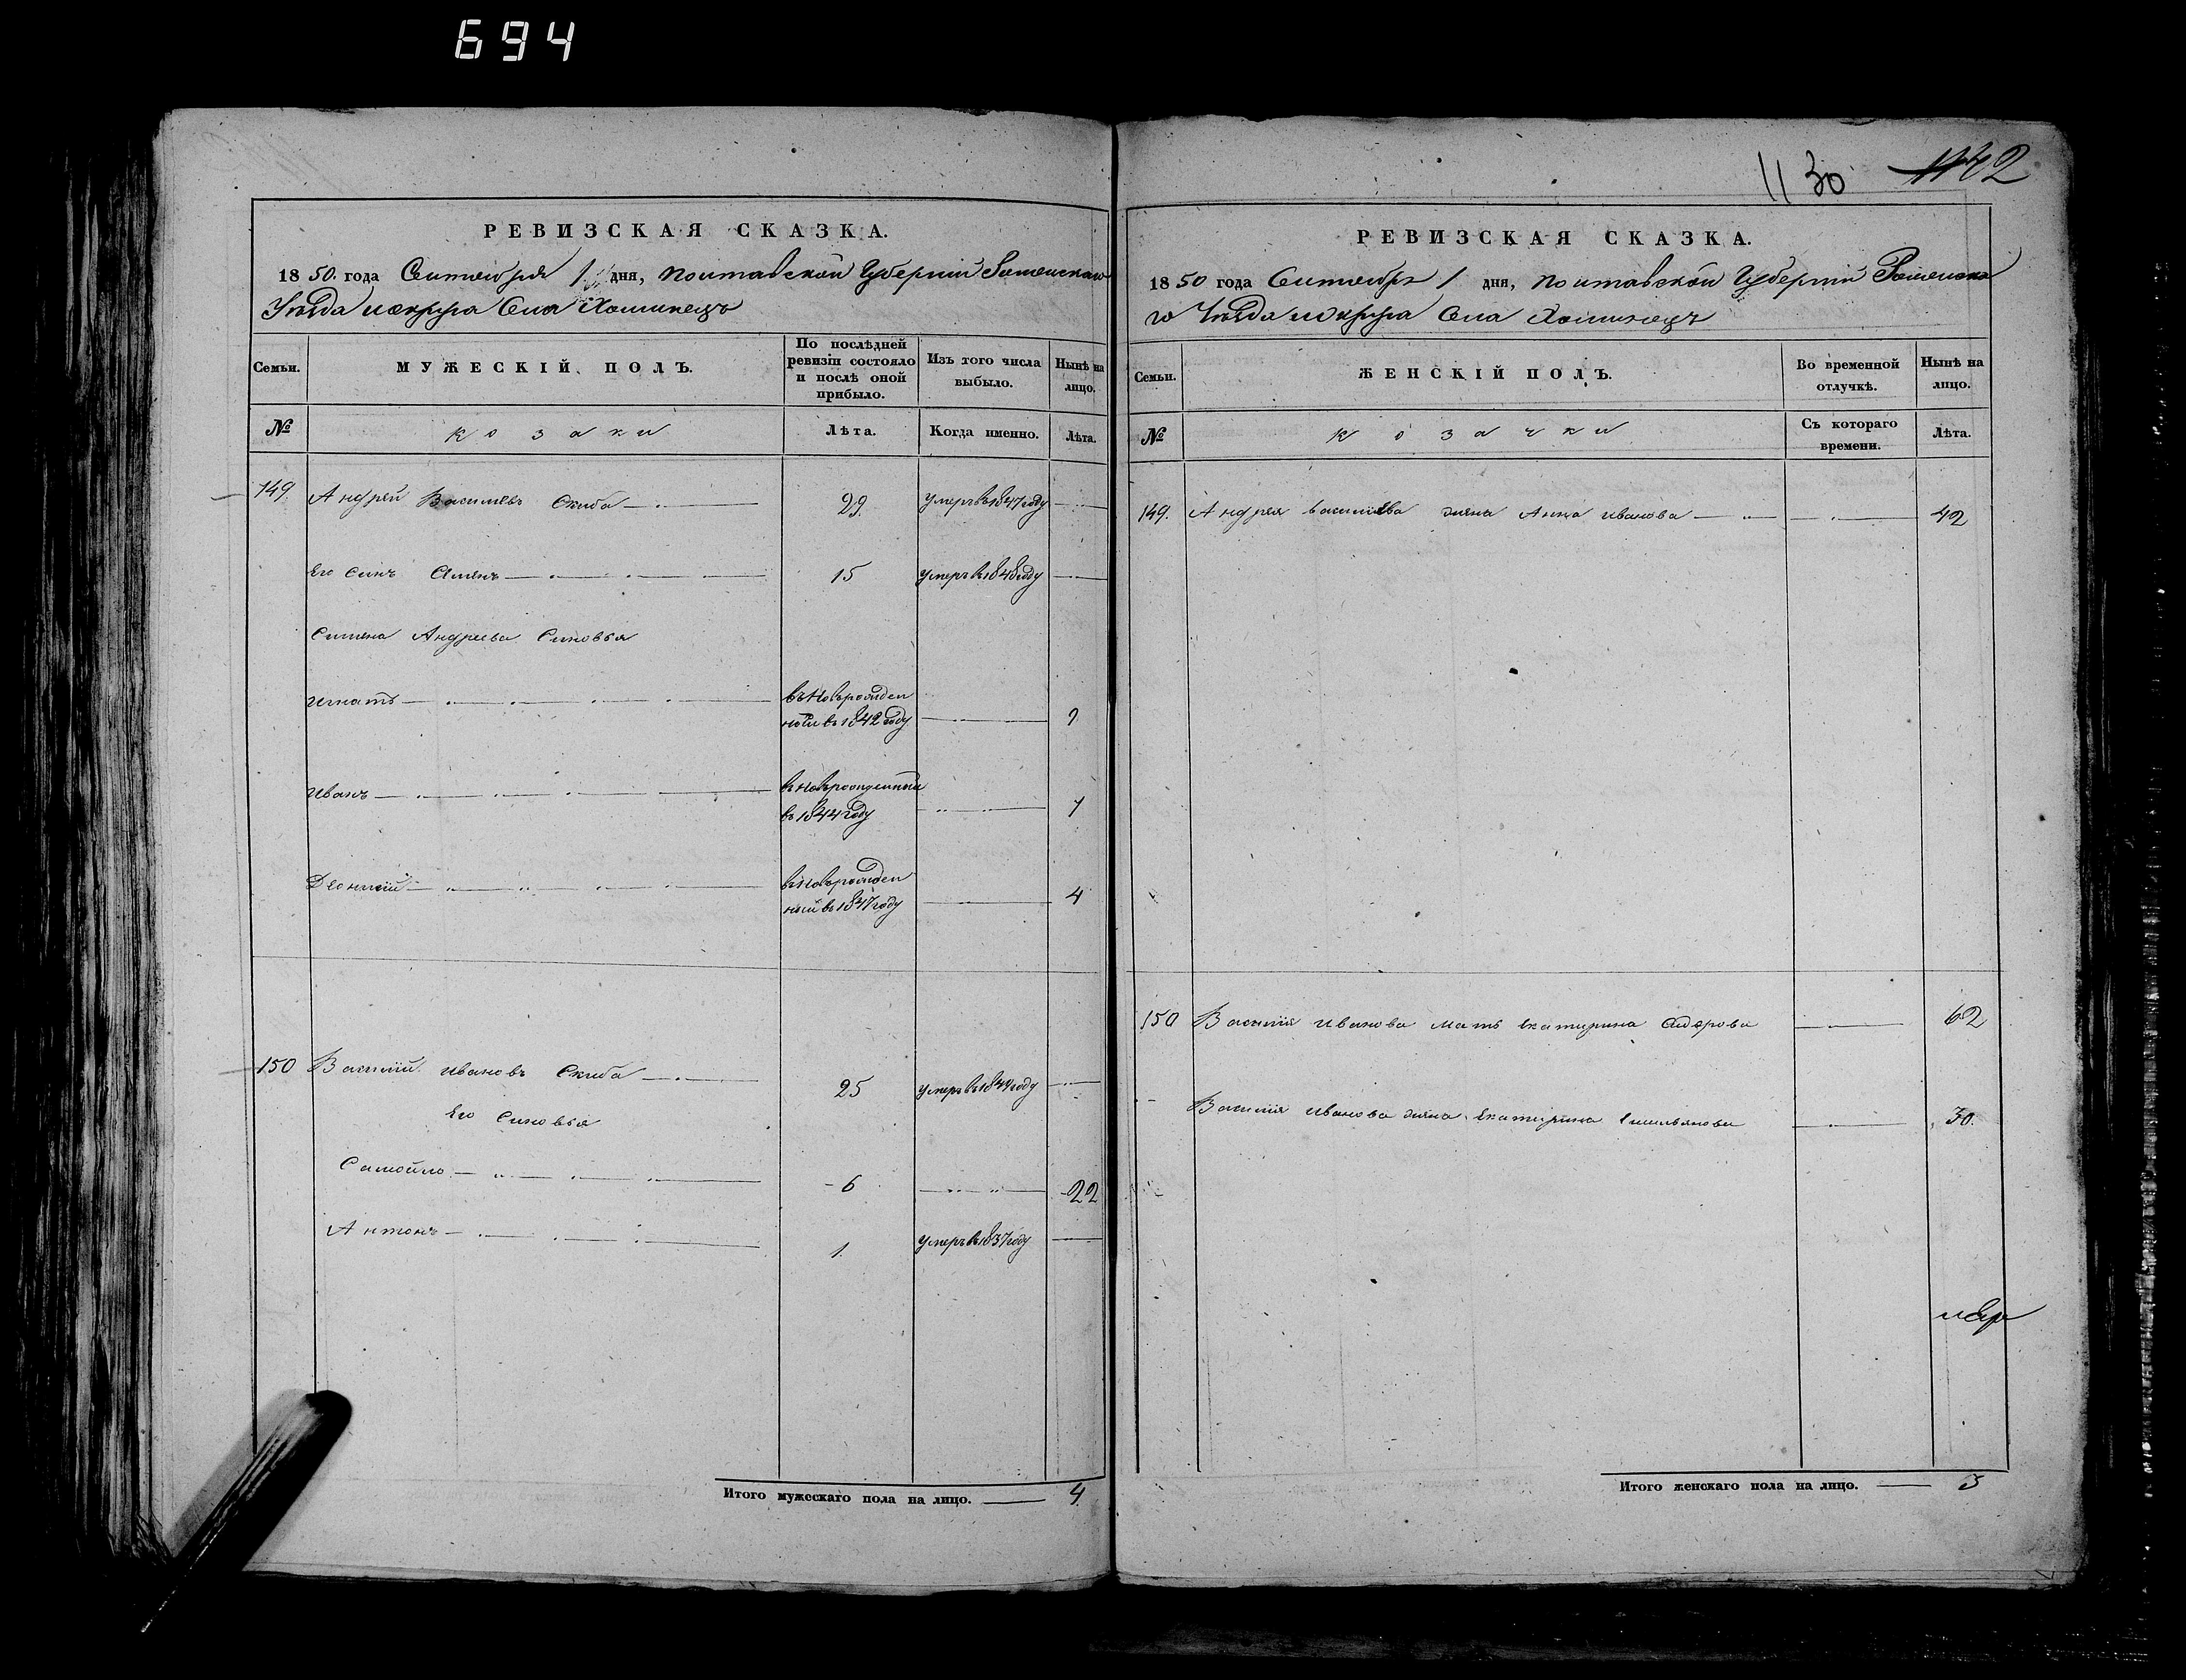 694
РЕВИЗСКАЯ СКАЗКА.
1850. года Сентебря 1 дня, Полтавской Губернии Роменскаго
Уезда и округа Села Хоминецъ
Семьи.
МУЖЕСКІЙ ПОЛЪ.
По послѣдней ревизіи состояло и послѣ оной прибыло.
Изъ того числа выбыло.
Нынѣ на лицо.
№
козаки
Лѣта.
Когда именно.
Лѣта.
149 Андрей Василевъ Скиба 29 умеръ в 1847 году
Его Синъ Семенъ 15 умеръ в 1848 году
Симена Андреева Синовья
Игнатъ въновърожден
ный въ 1842 году 9
Иванъ въновърожденный
въ 1844 году 7
Деонисий въновърожден
ный въ 1847 году 4
150 Василий Ивановъ Скиба 25 умеръ в 1844 году
Его Синовья
Самойло 6 22
Антонъ 1. умеръ в 1837 году
Итого мужескаго пола на лицо. 4
1130 1132
РЕВИЗСКАЯ СКАЗКА.
1850 года Сентебря 1 дня, Полтавской Губернии Роменска
го Уезда и округа Села Хоминецъ
Семьи.
ЖЕНСКІЙ ПОЛЪ.
Во временной отлучкѣ.
Нынѣ на лицо.
№
козачки
Съ котораго времени.
Лѣта.
149. Андрея Василева жена Анна Иванова 42
150 Василия Иванова мать Екатирина Сидорова 62
Василия Иванова жена Екатирина Емельянова 30.
Итого женскаго пола на лицо. 3